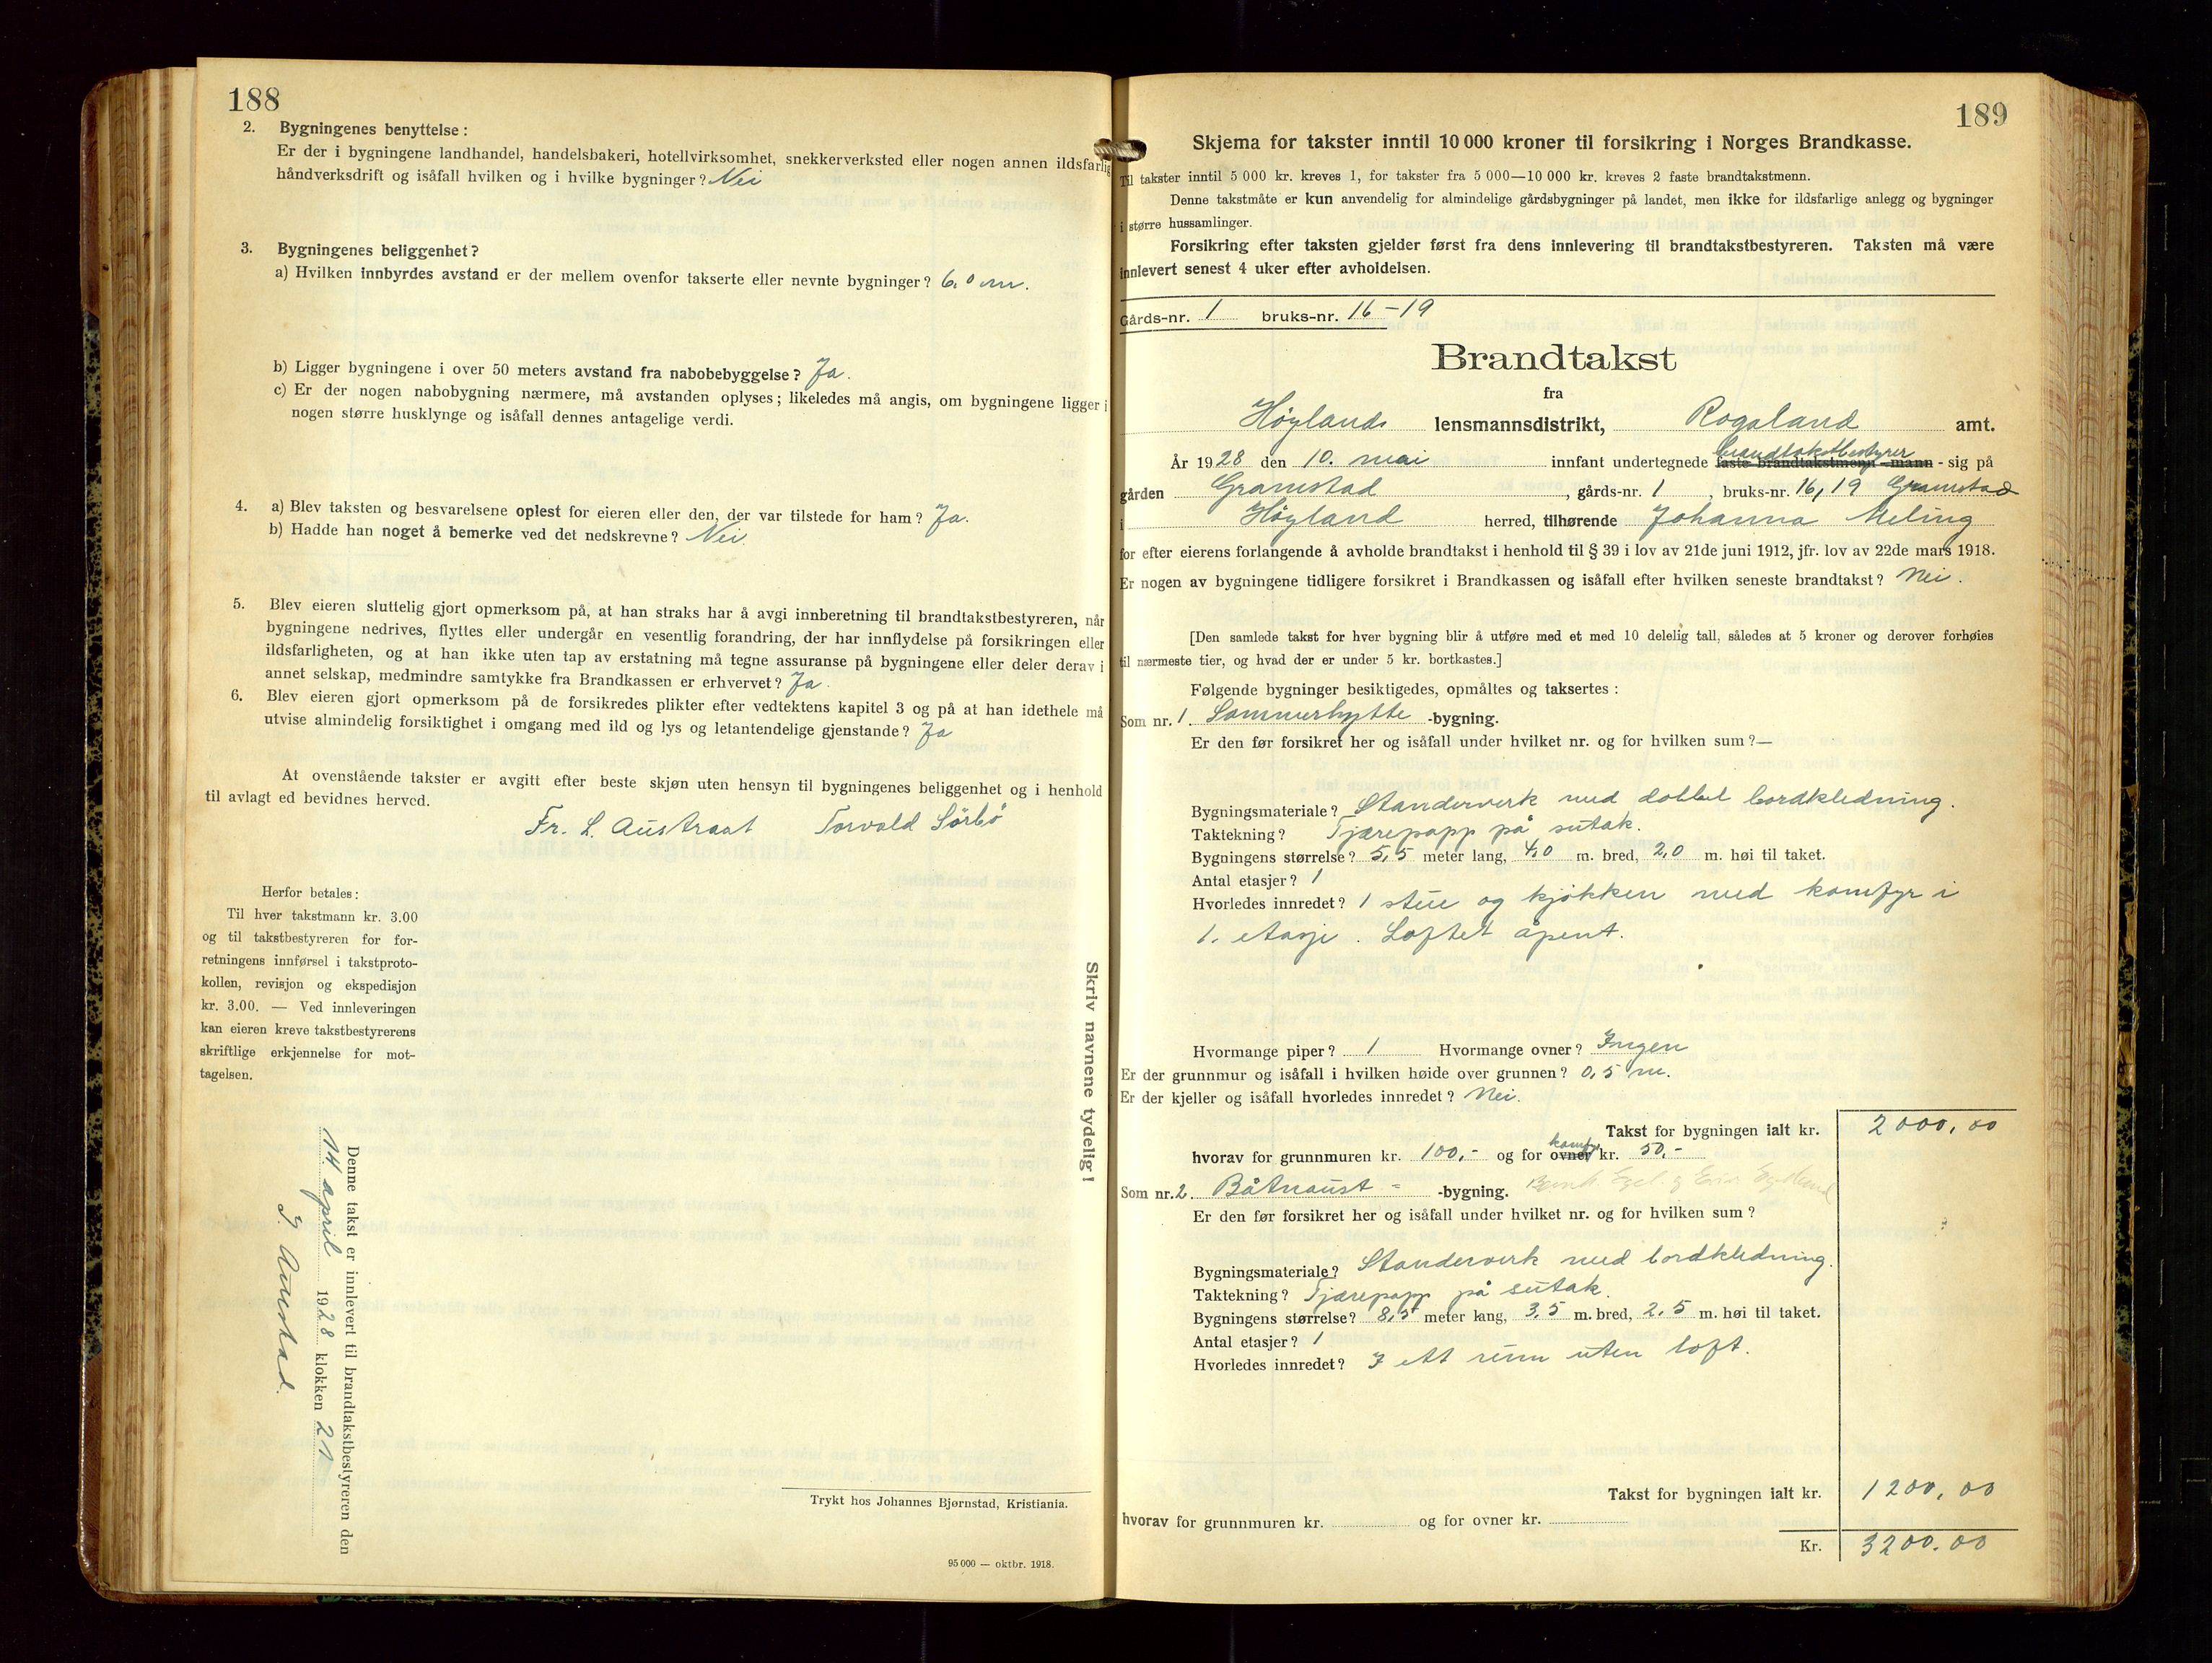 188
2. Bygningenes benyttelse :
Er der i bygningene landhandel, handelsbakeri, hotellvirksomhet, snekkerverksted eller nogen annen ildsfarlig
håndverksdrift og isåfall hvilken og i hvilke bygninger? Nei
3. Bygningenes beliggenhet?
a) Hvilken innbyrdes avstand er der mellem ovenfor takserte eller nevnte bygninger? 6,0 m.
b) Ligger bygningene i over 50 meters avstand fra nabobebyggelse? Ja.
c) Er der nogen nabobygning nærmere, må avstanden oplyses; likeledes må angis, om bygningene ligger i
nogen større husklynge og isåfall dennes antagelige verdi.
4. a) Blev taksten og besvarelsene oplest for eieren eller den, der var tilstede for ham? Ja.
b) Hadde han noget å bemerke ved det nedskrevne? Nei
5. Blev eieren sluttelig gjort opmerksom på, at han straks har å avgi innberetning til brandtakstbestyreren, når
bygningene nedrives, flyttes eller undergår en vesentlig forandring, der har innflydelse på forsikringen eller
ildsfarligheten, og at han ikke uten tap av erstatning må tegne assuranse på bygningene eller deler derav i
annet selskap, medmindre samtykke fra Brandkassen er erhvervet? Ja.
6. Blev eieren gjort opmerksom på de forsikredes plikter efter vedtektens kapitel 3 og på at han idethele må
utvise almindelig forsiktighet i omgang med ild og lys og letantendelige gjenstande? Ja
At ovenstående takster er avgitt efter beste skjøn uten hensyn til bygningenes beliggenhet og i henhold
til avlagt ed bevidnes herved.
Fr. L. Austraat Torvald Sörbö
Herfor betales:
Til hver takstmann kr. 3.00
og til takstbestyreren for for-
retningens innførsel i takstproto-
kollen, revisjon og ekspedisjon
kr. 3.00. — Ved innleveringen
kan eieren kreve takstbestyrerens
skriftlige erkjennelse for mot-
tagelsen.
Skriv navnene tydelig!
Denne takst er innlevert til brandtakstbestyreren den
14 april 1928 klokken 21
J. Aurstad.
Trykt hos Johannes Bjørnstad, Kristiania.
95 000 — oktbr. 1918.
189
Skjema for takster inntil 10 000 kroner til forsikring i Norges Brandkasse.
Til takster inntil 5 000 kr. kreves 1, for takster fra 5 000—10 000 kr. kreves 2 faste brandtakstmenn.
Denne takstmåte er kun anvendelig for almindelige gårdsbygninger på landet, men ikke for ildsfarlige anlegg og bygninger
i større hussamlinger.
Forsikring efter taksten gjelder først fra dens innlevering til brandtakstbestyreren. Taksten må være
innlevert senest 4 uker efter avholdelsen.
Gårds-nr. 1 bruks-nr. 16-19
Brandtakst
fra
Höylands lensmannsdistrikt, Rogaland amt.
brandtakstbestyrer
År 1928 den 10. mai innfant undertegnede faste brandtakstmenn -mann - sig på
gården Gramstad, gårds-nr. 1, bruks-nr. 16, 19 Gramstad
i Höyland herred, tilhørende Johanna Meling
for efter eierens forlangende å avholde brandtakst i henhold til § 39 i lov av 21de juni 1912, jfr. lov av 22de mars 1918.
Er nogen av bygningene tidligere forsikret i Brandkassen og isåfall efter hvilken seneste brandtakst? Nei.
[Den samlede takst for hver bygning blir å utføre med et med 10 delelig tall, således at 5 kroner og derover forhøies
til nærmeste tier, og hvad der er under 5 kr. bortkastes.]
Følgende bygninger besiktigedes, opmåltes og taksertes :
Som nr. 1. Sommerhytte -bygning.
Er den før forsikret her og isåfall under hvilket nr. og for hvilken sum? —
Bygningsmateriale? Standerverk med dobbel bordkledning.
Taktekning? Tjærepapp på sutak.
Bygningens størrelse? 5,5 meter lang, 4,0 m. bred, 2,0 m. høi til taket.
Antal etasjer? 1
Hvorledes innredet? 1 stue og kjökken med komfyr i
1. etasje. Loftet åpent.
Hvormange piper? 1 Hvormange ovner? Ingen
Er der grunnmur og isåfall i hvilken høide over grunnen? 0,5 m.
Er der kjeller og isåfall hvorledes innredet? Nei.
Takst for bygningen ialt kr. 2000,00
komfyr
hvorav for grunnmuren kr. 100,- og for ovner kr. 50,-
Som nr. 2. Båtnaust - -bygning.
Er den før forsikret her og isåfall under hvilket nr. og for hvilken sum?
Bygningsmateriale? Standerverk med bordkledning.
Taktekning? Tjærepapp på sutak.
Bygningens størrelse? 8,5 meter lang, 3,5 m. bred, 2,5 m. høi til taket.
Antal etasjer? 1
Hvorledes innredet? I ett rum uten loft.
Takst for bygningen ialt kr. 1200,00
hvorav for grunnmuren kr. og for ovner kr.
Kr. 3200.00